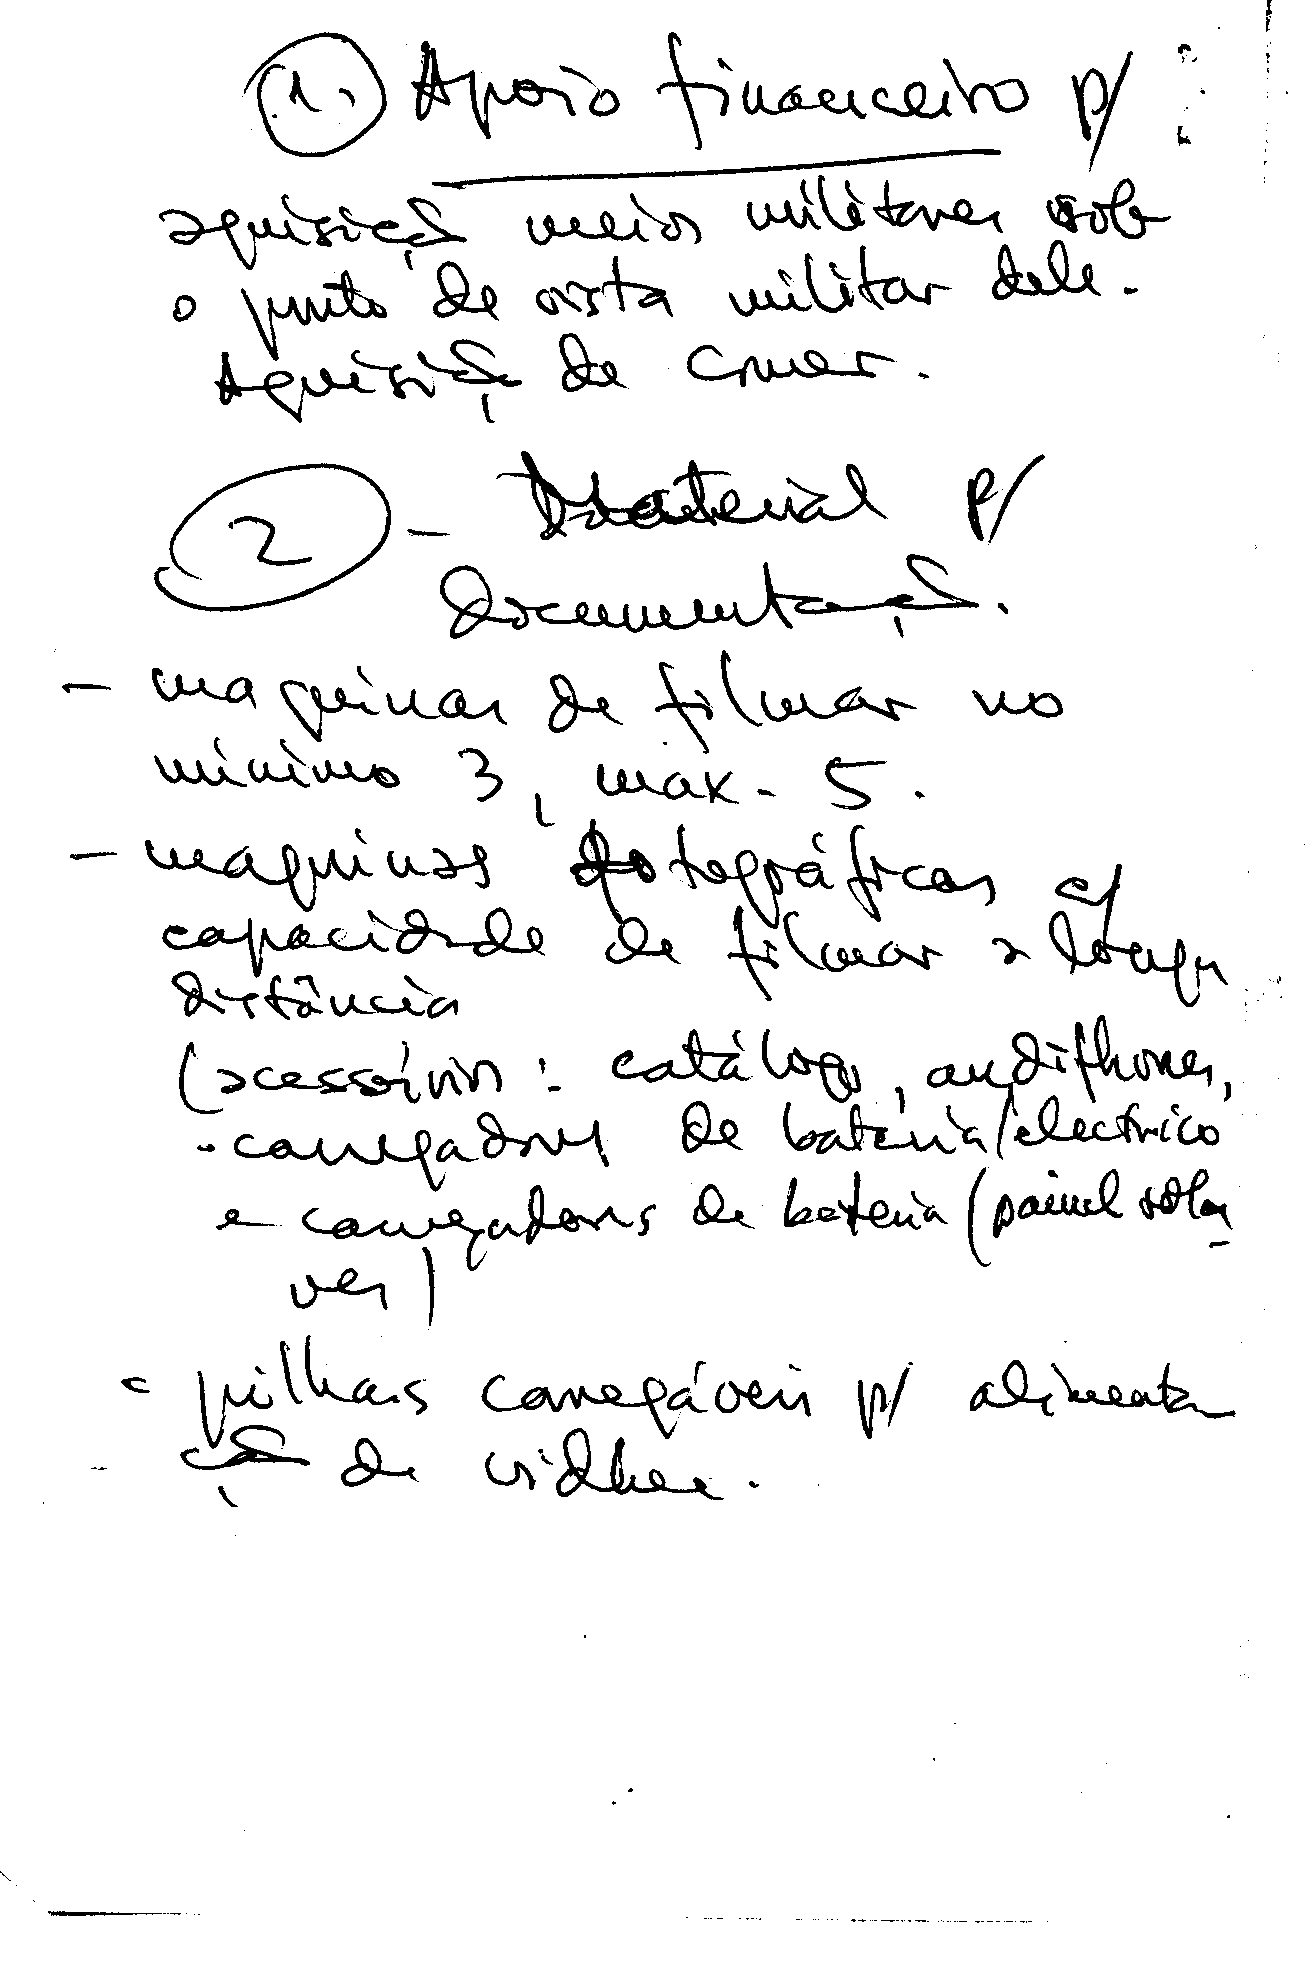 1. Apoio financeiro p/:
aquisição meios militares sob
o ponto de vista militar dele.
Aquisição de comer.
2 - Material p/
documentação.
- maquinas de filmar no
minimo 3, max. 5.
- maquinas fotográficas c/
capacidade de filmar a longa
distância
(acessórios: catálogo, audifhones,
- carregadores de bateria/electrico
e carregadores de bateria (painel solar
ver)
- pilhas carregáveis p/ alimenta
ção de